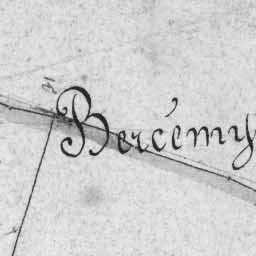 Bercémy